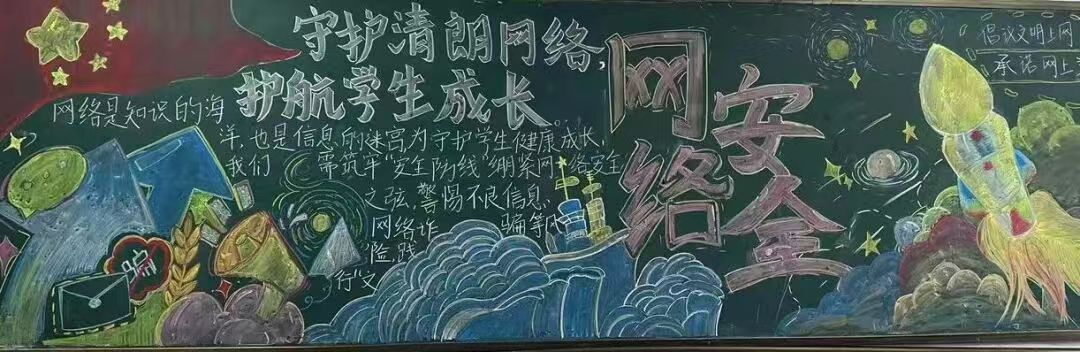 守护清朗网络，
护航学生成长
网络是知识的海
洋，也是信息的迷宫为守护学生健康成长，
我们 需筑牢"安全防线"绷紧网络安全
之弦，警惕不良信息、
网络诈 骗等风
险，践
行"文
网络
安全
倡议文明上网
承诺网上
骗